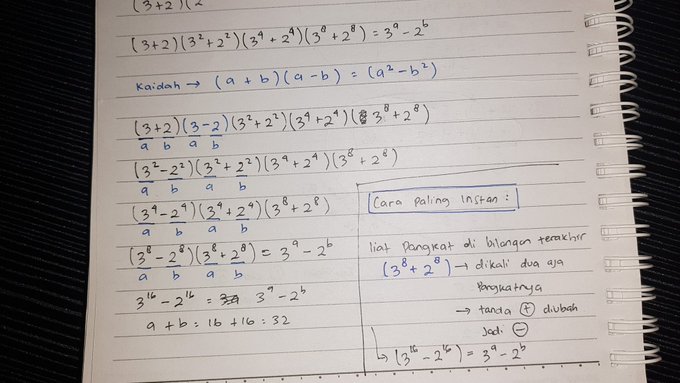 (3+2)(2
(3+2)(3²+2²)(3⁴+2⁴)(3⁸+2⁸) = 3ᵃ-2ᵇ
Kaidah → (a+b)(a-b) = (a²-b²)
(3+2)(3-2)(3²+2²)(3⁴+2⁴)(3⁸+2⁸)
a b a b
(3²-2²)(3²+2²)(3⁴+2⁴)(3⁸+2⁸)
a b a b
(3⁴-2⁴)(3⁴+2⁴)(3⁸+2⁸)
a b a b
(3⁸-2⁸)(3⁸+2⁸) = 3ᵃ-2ᵇ
a b a b
3¹⁶-2¹⁶ = 3ᵃ-2ᵇ
a+b = 16+16 = 32
Cara paling instan :
liat pangkat di bilangan terakhir
(3⁸+2⁸) → dikali dua aja
pangkatnya
→ tanda (+) diubah
jadi (-)
↳ (3¹⁶-2¹⁶) = 3ᵃ-2ᵇ